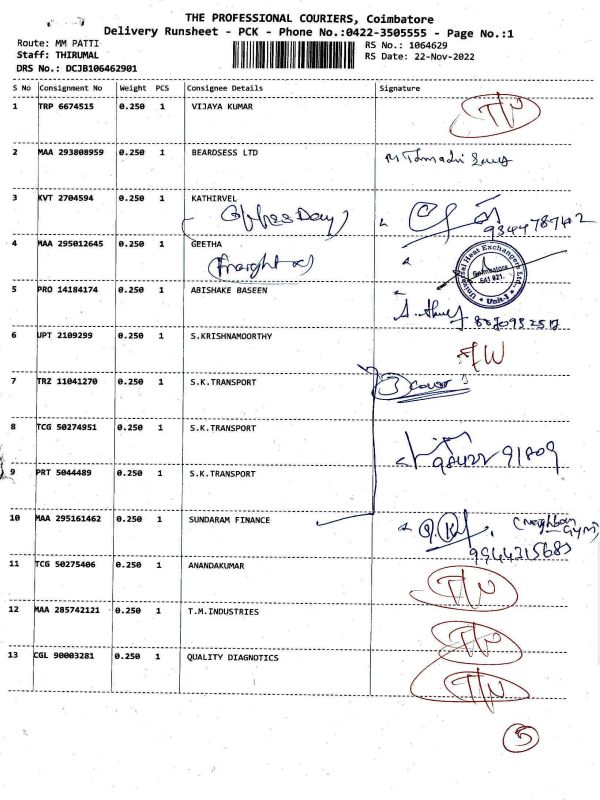 THE PROFESSIONAL COURIERS, Coimbatore
Delivery Runsheet - PCK - Phone No.:0422-3505555 - Page No.:1
Route: MM PATTI
RS No.: 1064629
Staff: THIRUMAL
RS Date: 22-Nov-2022
DRS No.: DCJB106462901
S No Consignment No Weight PCS Consignee Details Signature
1 TRP 6674515 0.250 1 VIJAYA KUMAR
2 MAA 293808959 0.250 1 BEARDSESS LTD
3 KVT 2704594 0.250 1 KATHIRVEL
4 MAA 295012645 0.250 1 GEETHA
Universal Heat Exchangers Ltd.,
Coimbatore
641 021.
Unit-I
5 PRO 14184174 0.250 1 ABISHAKE BASEEN
6 UPT 2109299 0.250 1 S.KRISHNAMOORTHY
7 TRZ 11041270 0.250 1 S.K.TRANSPORT
3 cover
8 TCG 50274951 0.250 1 S.K.TRANSPORT
98422 91809
9 PRT 5044489 0.250 1 S.K.TRANSPORT
10 MAA 295161462 0.250 1 SUNDARAM FINANCE
(Neighbour
GYM)
11 TCG 50275406 0.250 1 ANANDAKUMAR
12 MAA 285742121 0.250 1 T.M.INDUSTRIES
13 CGL 90003281 0.250 1 QUALITY DIAGNOTICS
5